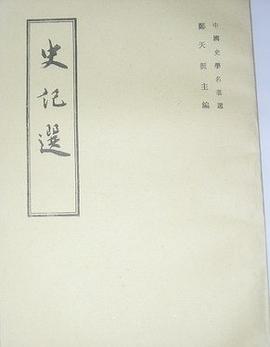 中國史學名著選
鄭天挺主編
史记選